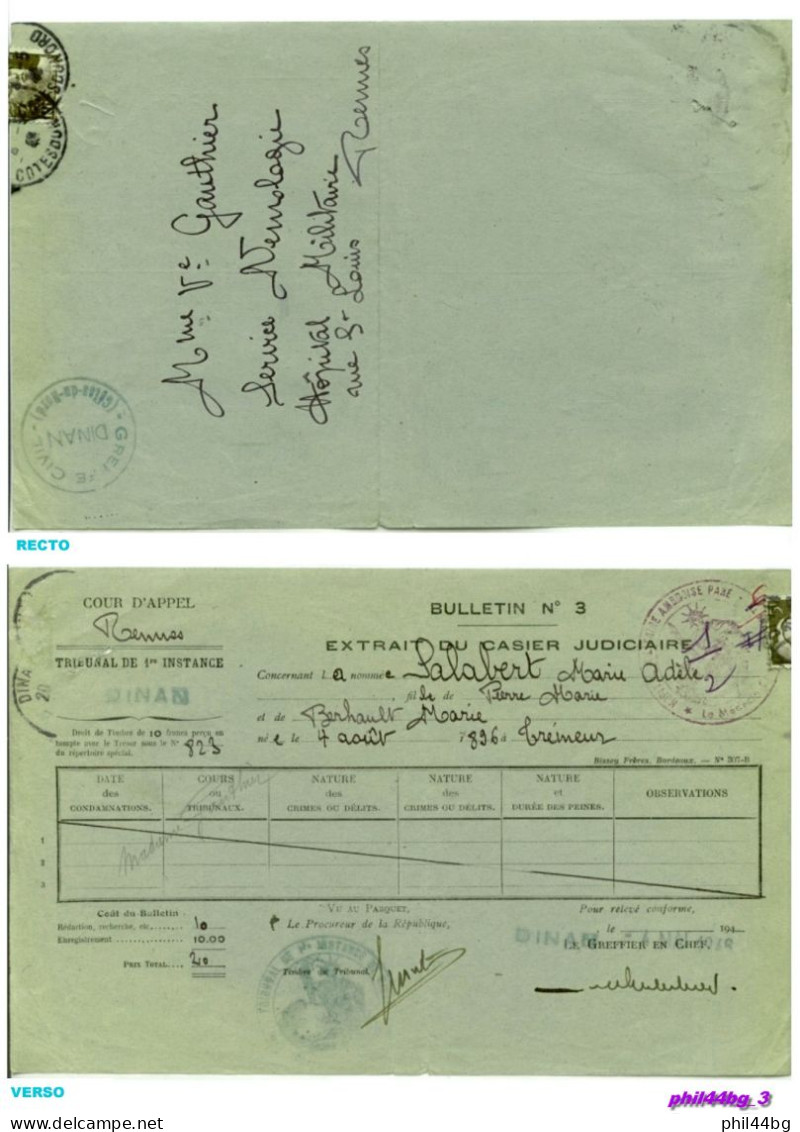 COTES DU NORD
Mme Vve Gauthier
Service
Hôpital Militaire
rue St Louis Rennes
GREFFE CIVIL - (Côtes-du-Nord) -
DINAN
RECTO
COUR D'APPEL
Rennes
TRIBUNAL DE 1re INSTANCE
DINAN
Droit de Timbre de 10 francs perçu en
compte avec le Trésor sous le N° 823
du répertoire spécial.
BULLETIN N° 3
EXTRAIT DU CASIER JUDICIAIRE
Concernant l a nommé e Salabert Marie Adèle
fil le de Pierre Marie
et de Berhault Marie
né e le 4 août 1896 à Trémeur
DATE des CONDAMNATIONS.
COURS ou TRIBUNAUX.
NATURE des CRIMES OU DÉLITS.
NATURE des CRIMES OU DÉLITS.
NATURE et DURÉE DES PEINES.
OBSERVATIONS
1
2
3
Madame Gauthier
Coût du Bulletin :
Rédaction, recherche, etc. 10
Enregistrement 10.00
PRIX TOTAL 20
VU AU PARQUET,
Le Procureur de la République,
Timbre du Tribunal.
Pour relevé conforme,
le 194
DINAN
LE GREFFIER EN CHEF,
VERSO
phil44bg_3
delcampe.net
phil44bg